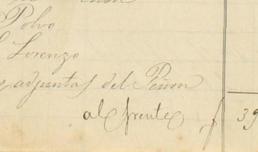 Polvo
Lorenzo
adjuntas del Peñon
al frente f 39